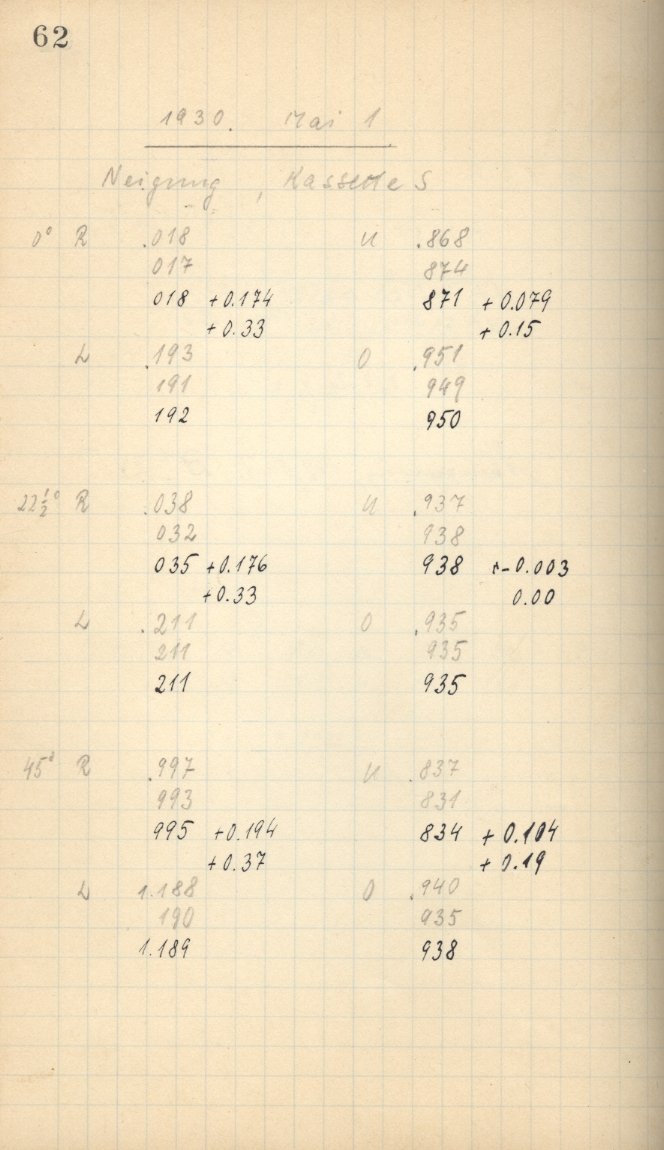 62
1930. Mai 1
Neigung, Kassette S
0° R .018 U .868
017 874
018 +0.174 871 +0.079
+0.33 +0.15
L .193 O .951
191 949
192 950
22½° R .038 U .937
032 938
035 +0.176 938 -0.003
+0.33 0.00
L .211 O .935
211 935
211 935
45° R .997 U .837
993 831
995 +0.194 834 +0.104
+0.37 +0.19
L 1.188 O .940
190 935
1.189 938